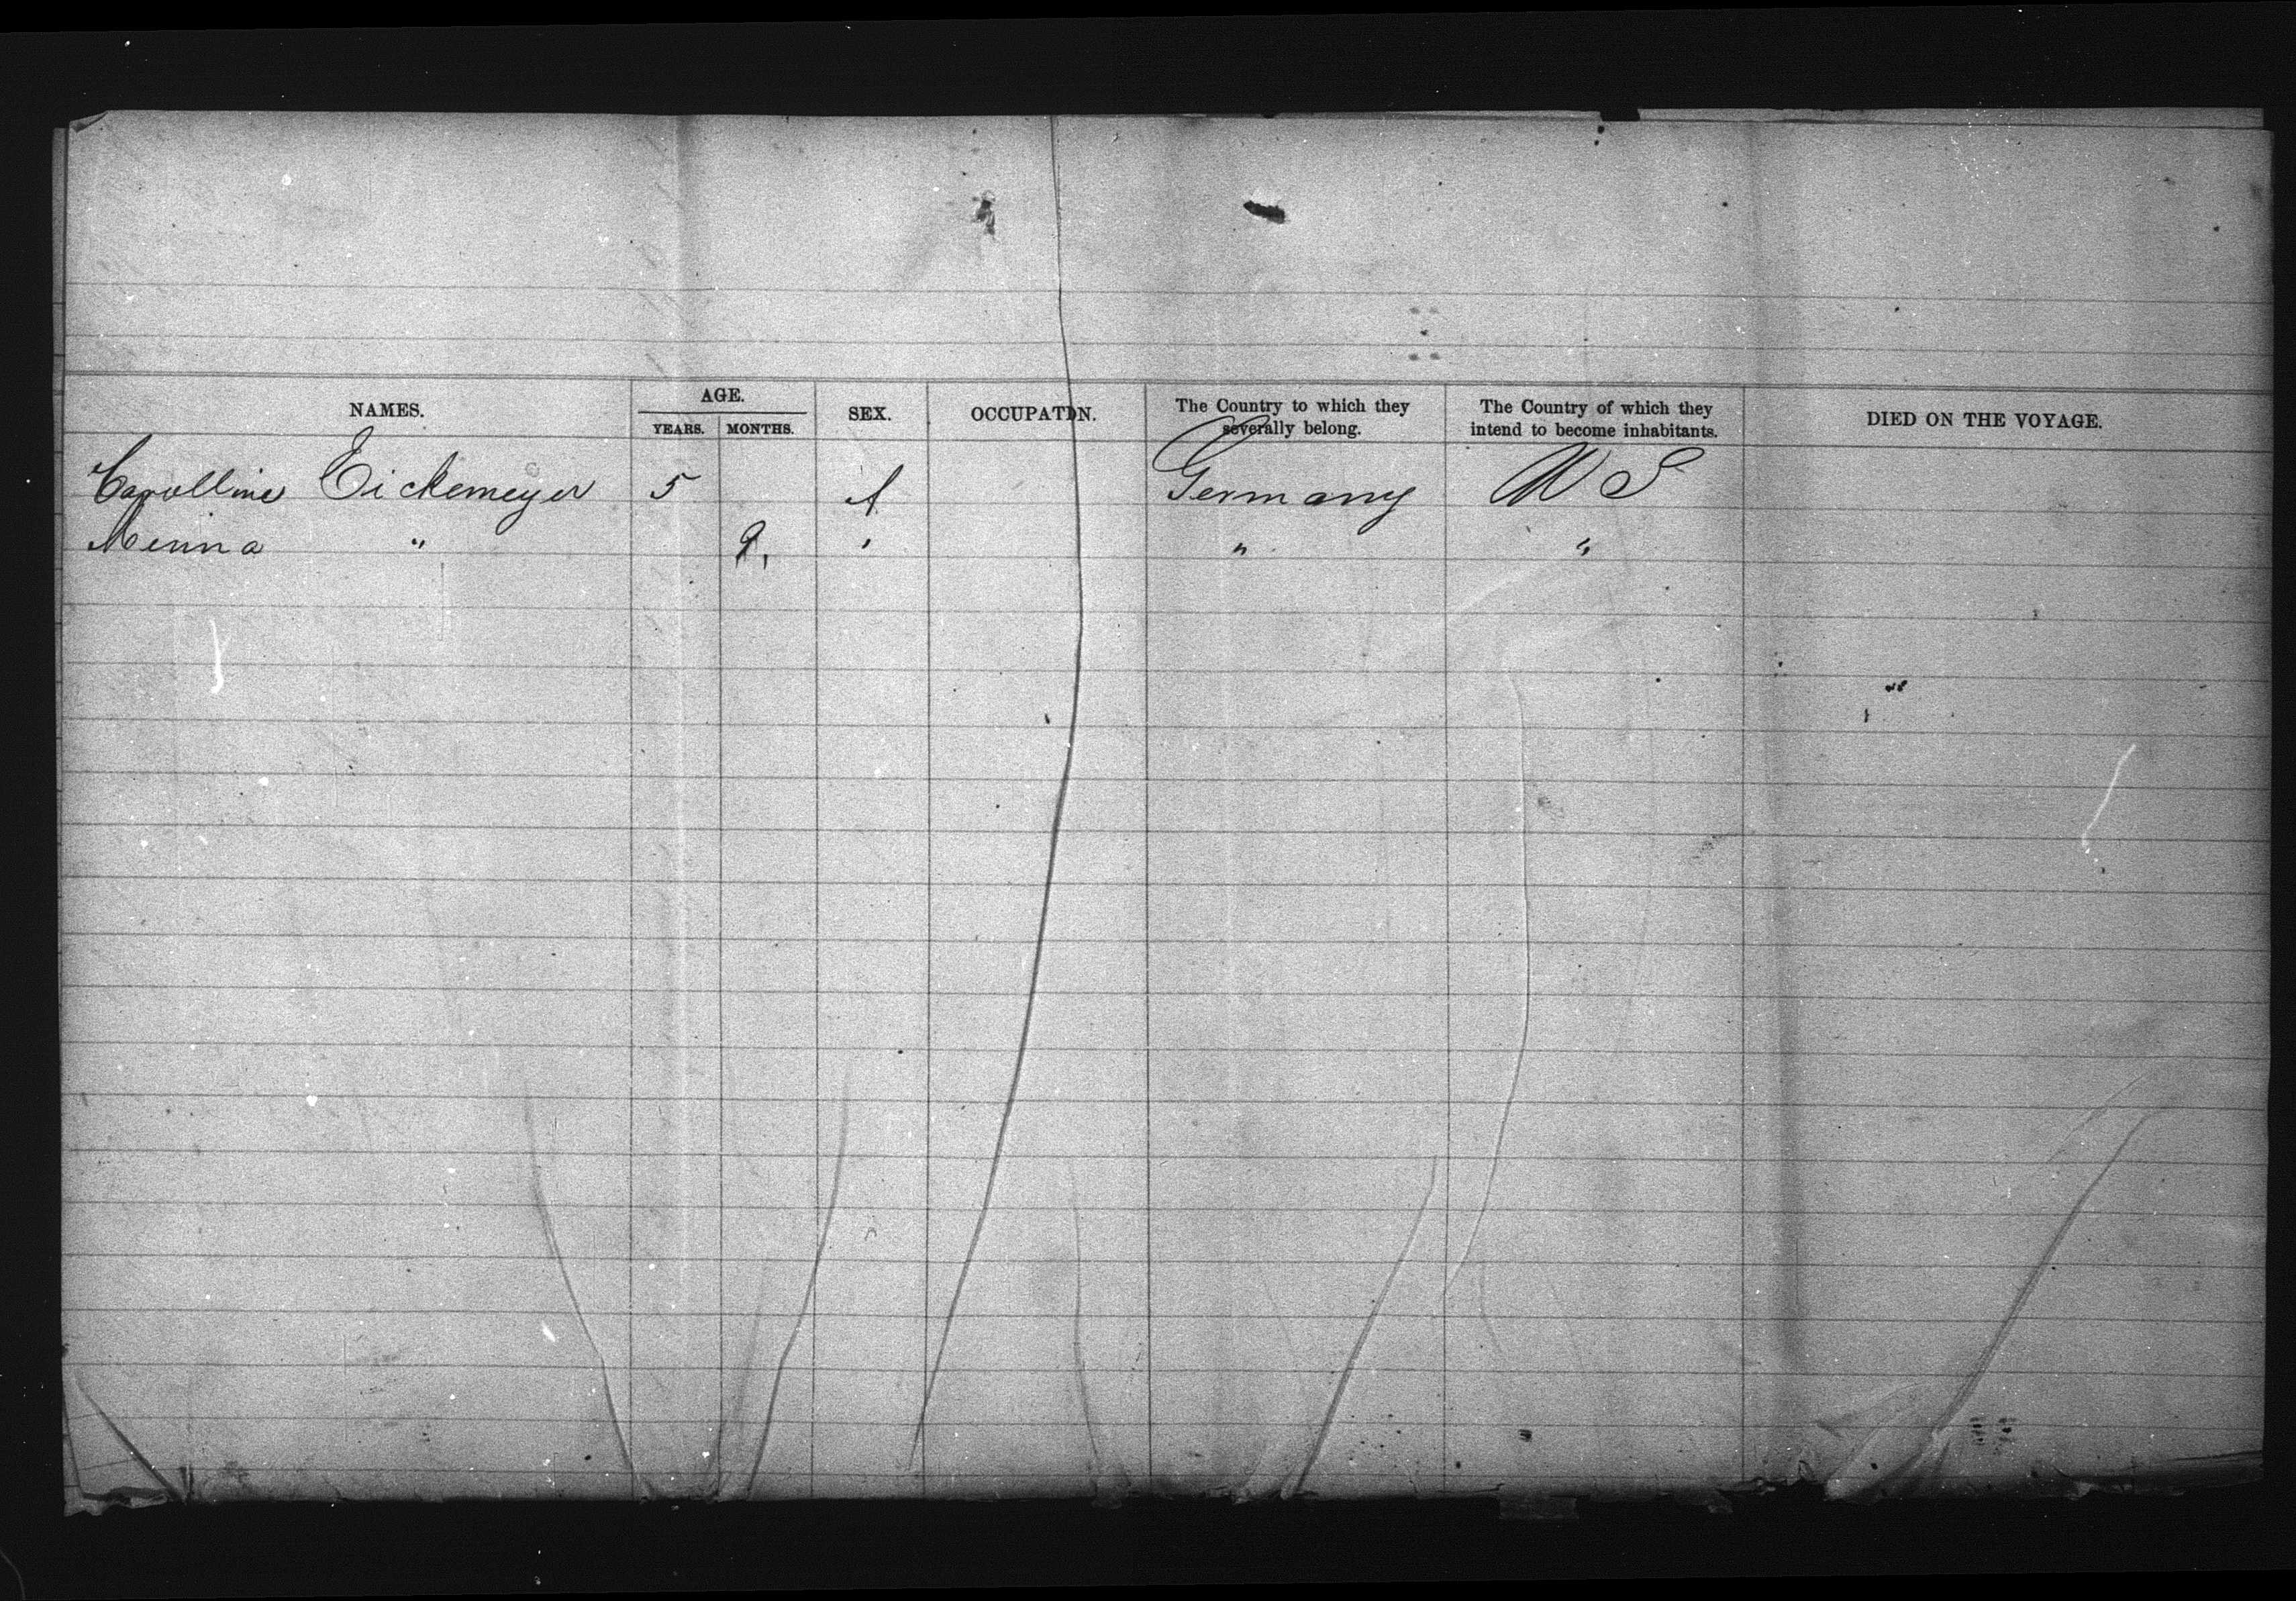 NAMES. AGE. SEX. OCCUPATION. The Country to which they severally belong. The Country of which they intend to become inhabitants. DIED ON THE VOYAGE.
YEARS. MONTHS.
Carolline Eickemeyer 5 f Germany U S
Minna " 9, " " "